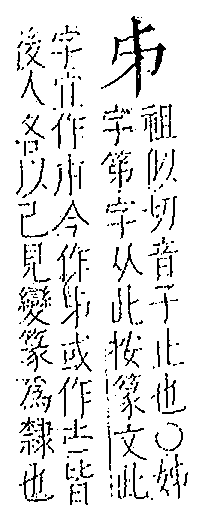 𠂔
祖似切音子止也〇姊
字第字从此按篆文此
字宜作今作𠂔或作皆
後人各以己見變篆為隸也